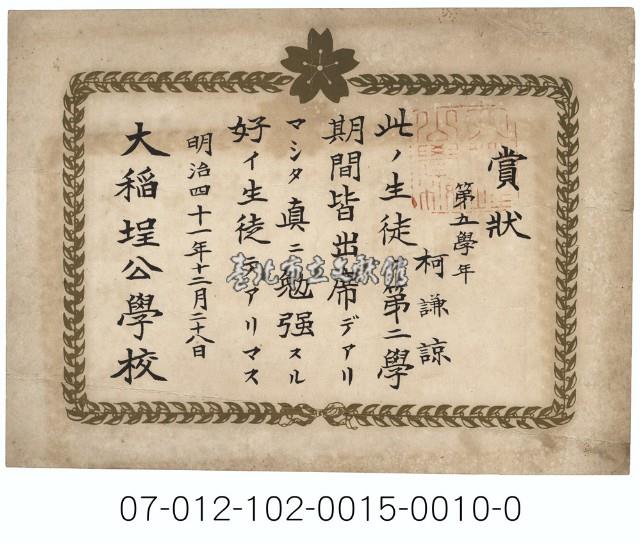 賞狀
第五學年
柯謙諒
此ノ生徒第二學
期間皆出席デアリ
マシタ真ニ勉强スル
好イ生徒デアリマス
明治四十一年十二月二十八日
大稻埕公學校
臺北市立文獻館
07-012-102-0015-0010-0